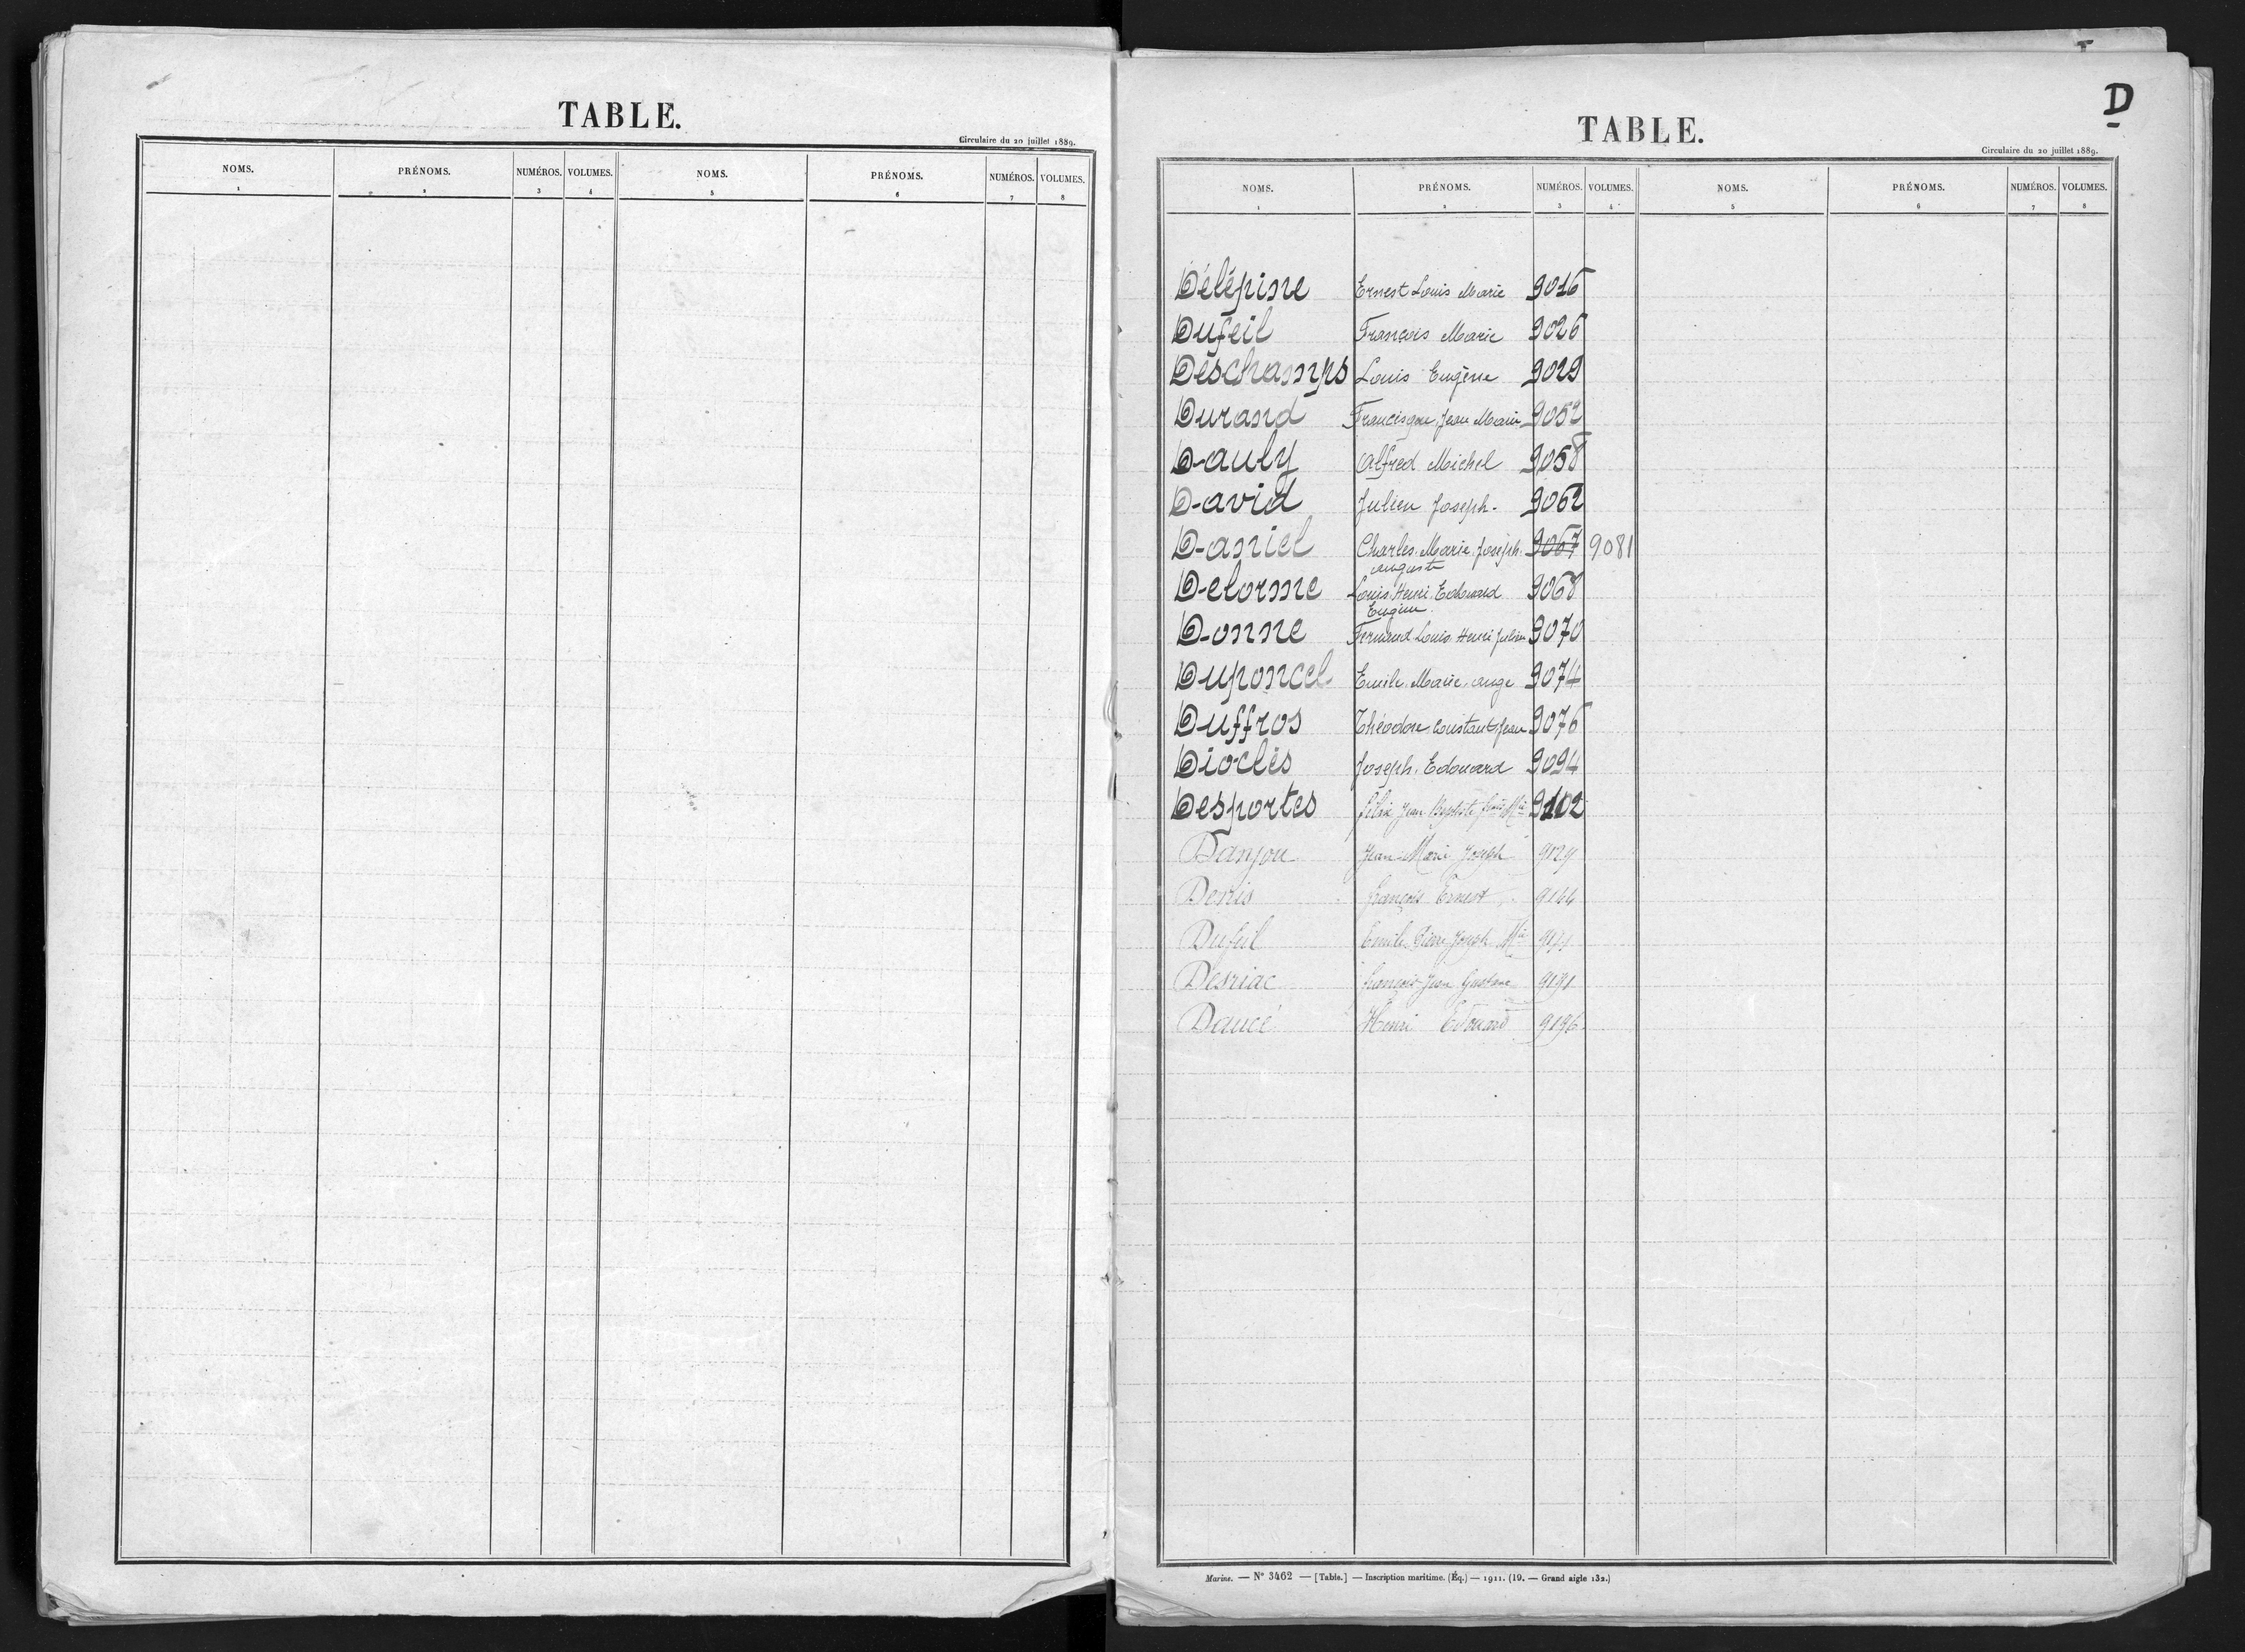 TABLE.
Circulaire du 20 juillet 1889.
NOMS. PRÉNOMS. NUMÉROS. VOLUMES. NOMS. PRÉNOMS. NUMÉROS. VOLUMES.
1 2 3 4 5 6 7 8
D
TABLE.
Circulaire du 20 juillet 1889.
NOMS. PRÉNOMS. NUMÉROS. VOLUMES. NOMS. PRÉNOMS. NUMÉROS. VOLUMES.
1 2 3 4 5 6 7 8
Délépine Ernest Louis Marie 9016
Dufeil François Marie 9026
Deschamps Louis Eugène 9029
Durand Francisque Jean Marie 9052
Dauly Alfred Michel 9058
David Julien Joseph. 9062
Daniel Charles Marie Joseph 9067 9081
auguste
Delorme Louis Henri Edouard 9068
Eugène
Donne Fernand Louis Henri Julien 9070
Duponcel Emile Marie ange 9074
Duffros Théodore Constant Jean 9076
Dioclès Joseph Edouard 9094
Desportes Félix Jean Baptiste 9102
Danjou Jean Marie Joseph 9129
Denis François Ernest 9144
Dufeil Emile Pierre Joseph Mie
Desriac François Jean Gustave 9191
Daucé Henri Edouard 9196
Marine. — N° 3462 — [Table.] — Inscription maritime. (Éq.) — 1911. (19. — Grand aigle 132.)